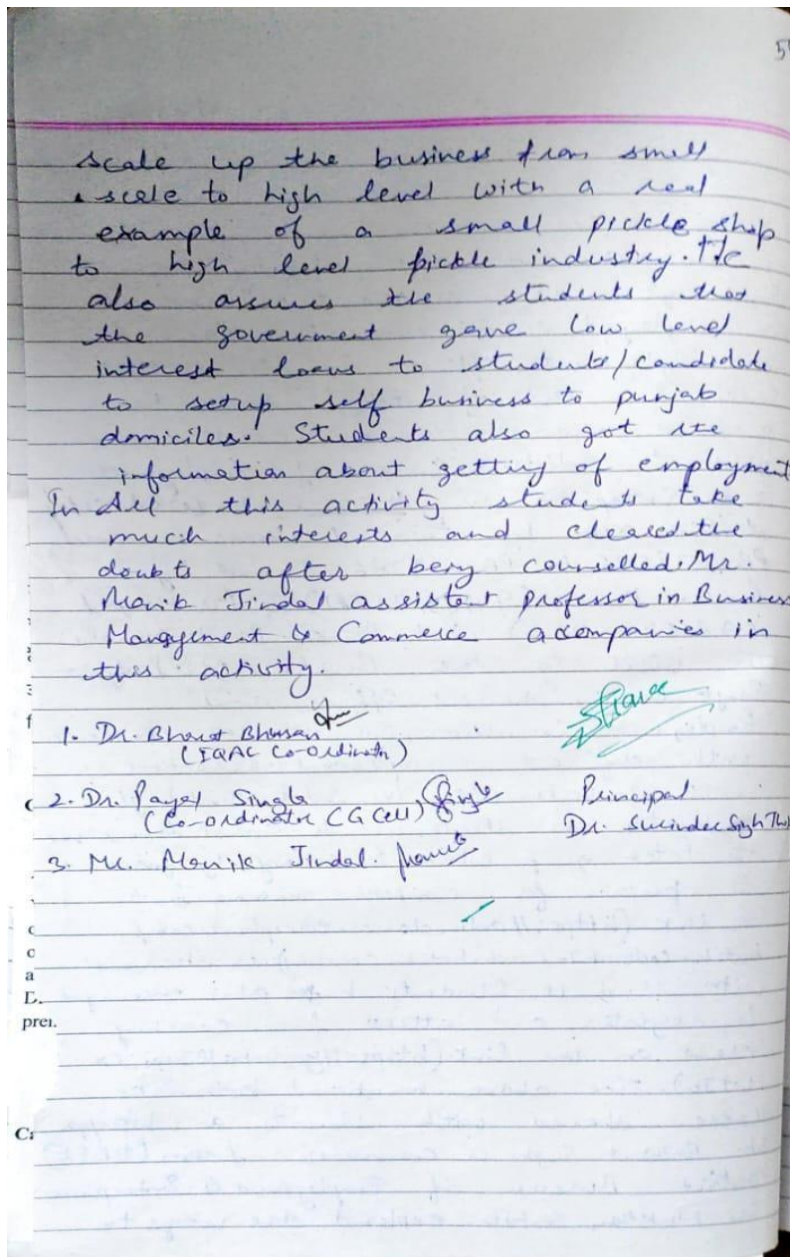 5
scale up the business from small
scale to high level with a real
example of a small pickle shop
to high level pickle industry. He
also assures the students that
the government gave low level
interest loans to students/candidate
to setup self business to punjab
domiciles. Students also got the
information about getting of employment
In All this activity students take
much interests and cleared the
doubts after being counselled. Mr.
Manik Jindal assistent professor in Business
Management & Commerce acompanies in
this activity.
1. Dr. Bharat Bhusan
(IQAC Co-ordinator)
2. Dr. Payal Singla
(Co-ordinator CG Cell)
Principal
Dr. Surinder Singh
3. Mr. Manik Jindal.
prei.